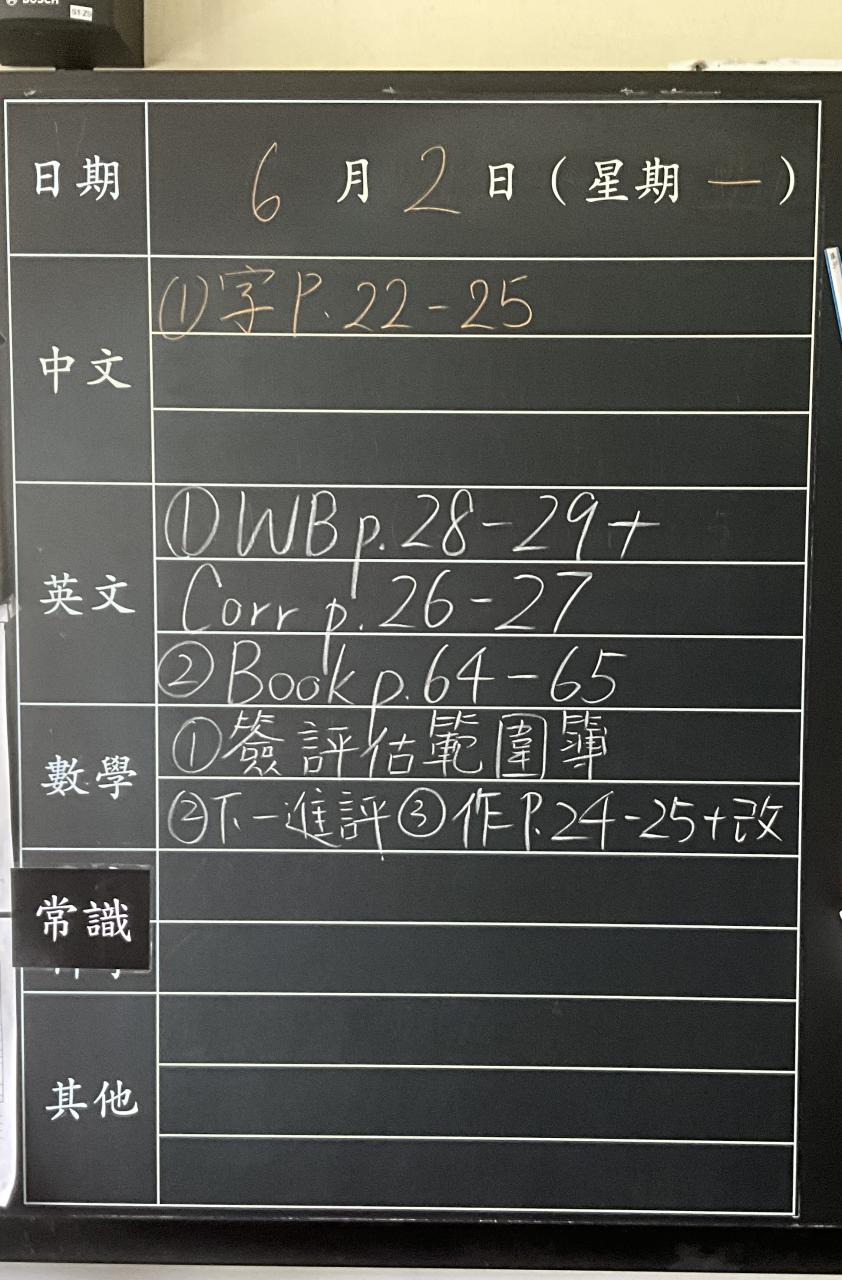 BOSCH
日期 6 月 2 日（星期 一）
中文
①字P.22-25
英文
①WB p.28-29+
Corr p.26-27
②Book p.64-65
數學
①簽評估範圍簿
②下一進評③作P.24-25+改
常識
其他